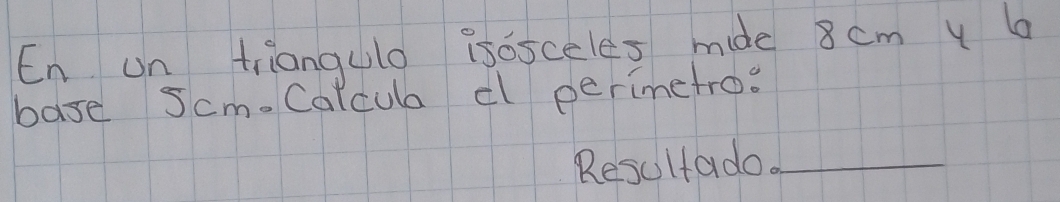 En un triangulo isósceles mide 8 cm y la
base 5cm. Calcula el perímetro:
Resultado. ______